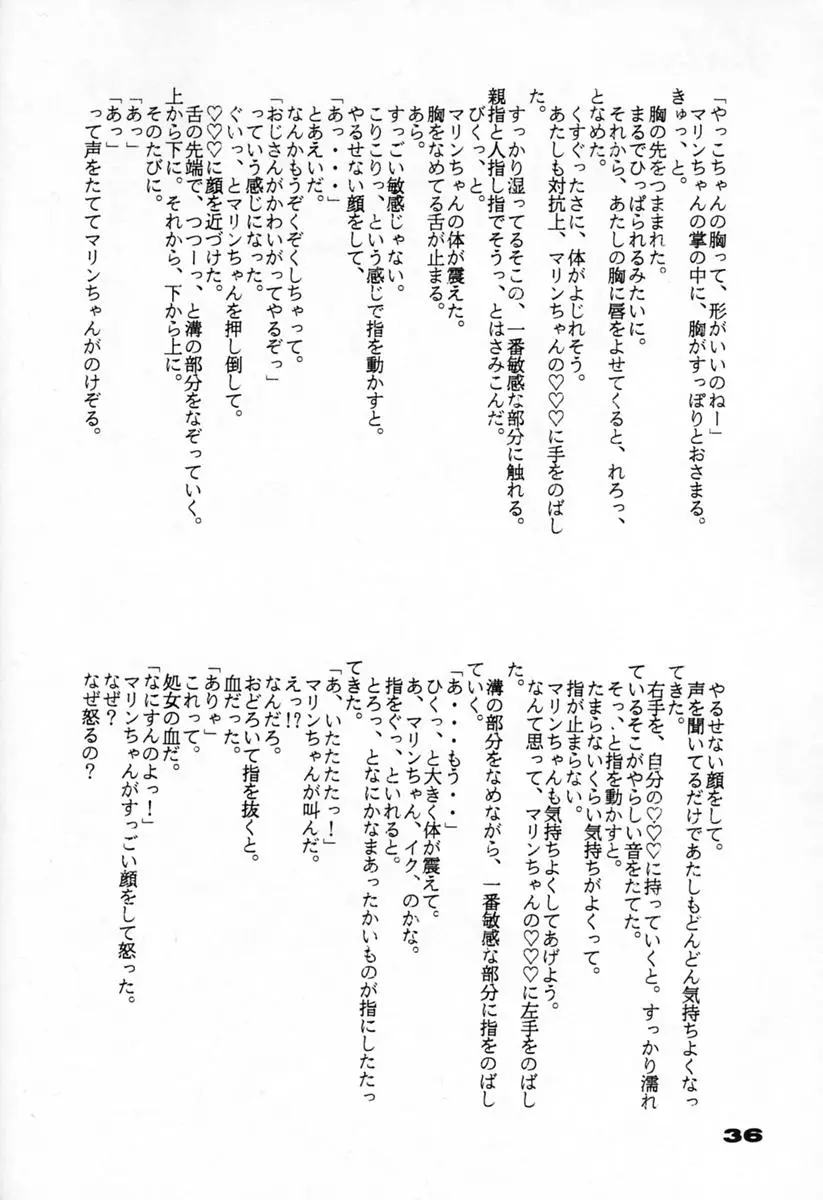 「やっこちゃんの胸って、形がいいのねー」
マリンちゃんの掌の中に、胸がすっぽりとおさまる。
きゅっ、と。
胸の先をつままれた。
まるでひっぱられるみたいに。
それから、あたしの胸に唇をよせてくると、れろっ、
となめた。
くすぐったさに、体がよじれそう。
あたしも対抗上、マリンちゃんの♡♡♡に手をのばし
た。
すっかり湿ってるそこの、一番敏感な部分に触れる。
親指と人指し指でそうっ、とはさみこんだ。
びくっ、と。
マリンちゃんの体が震えた。
胸をなめてる舌が止まる。
あら。
すっごい敏感じゃない。
こりこりっ、という感じで指を動かすと。
やるせない顔をして、
「あっ・・・」
とあえいだ。
なんかもうぞくぞくしちゃって。
「おじさんがかわいがってやるぞっ」
っていう感じになった。
ぐいっ、とマリンちゃんを押し倒して。
♡♡♡に顔を近づけた。
舌の先端で、つつーっ、と溝の部分をなぞっていく。
上から下に。それから、下から上に。
そのたびに。
「あっ」
「あっ」
って声をたててマリンちゃんがのけぞる。
やるせない顔をして。
声を聞いてるだけであたしもどんどん気持ちよくなっ
てきた。
右手を、自分の♡♡♡に持っていくと。すっかり濡れ
ているそこがやらしい音をたてた。
そっ、と指を動かすと。
たまらないくらい気持ちがよくって。
指が止まらない。
マリンちゃんも気持ちよくしてあげよう。
なんて思って、マリンちゃんの♡♡♡に左手をのばし
た。
溝の部分をなめながら、一番敏感な部分に指をのばし
ていく。
「あ・・・もう・・」
ひくっ、と大きく体が震えて。
あ、マリンちゃん、イク、のかな。
指をぐっ、といれると。
とろっ、となにかなまあったかいものが指にしたたっ
てきた。
「あ、いたたたたっ！」
マリンちゃんが叫んだ。
えっ!?
なんだろ。
おどろいて指を抜くと。
血だった。
「ありゃ」
これって。
処女の血だ。
「なにすんのよっ！」
マリンちゃんがすっごい顔をして怒った。
なぜ？
なぜ怒るの？
36